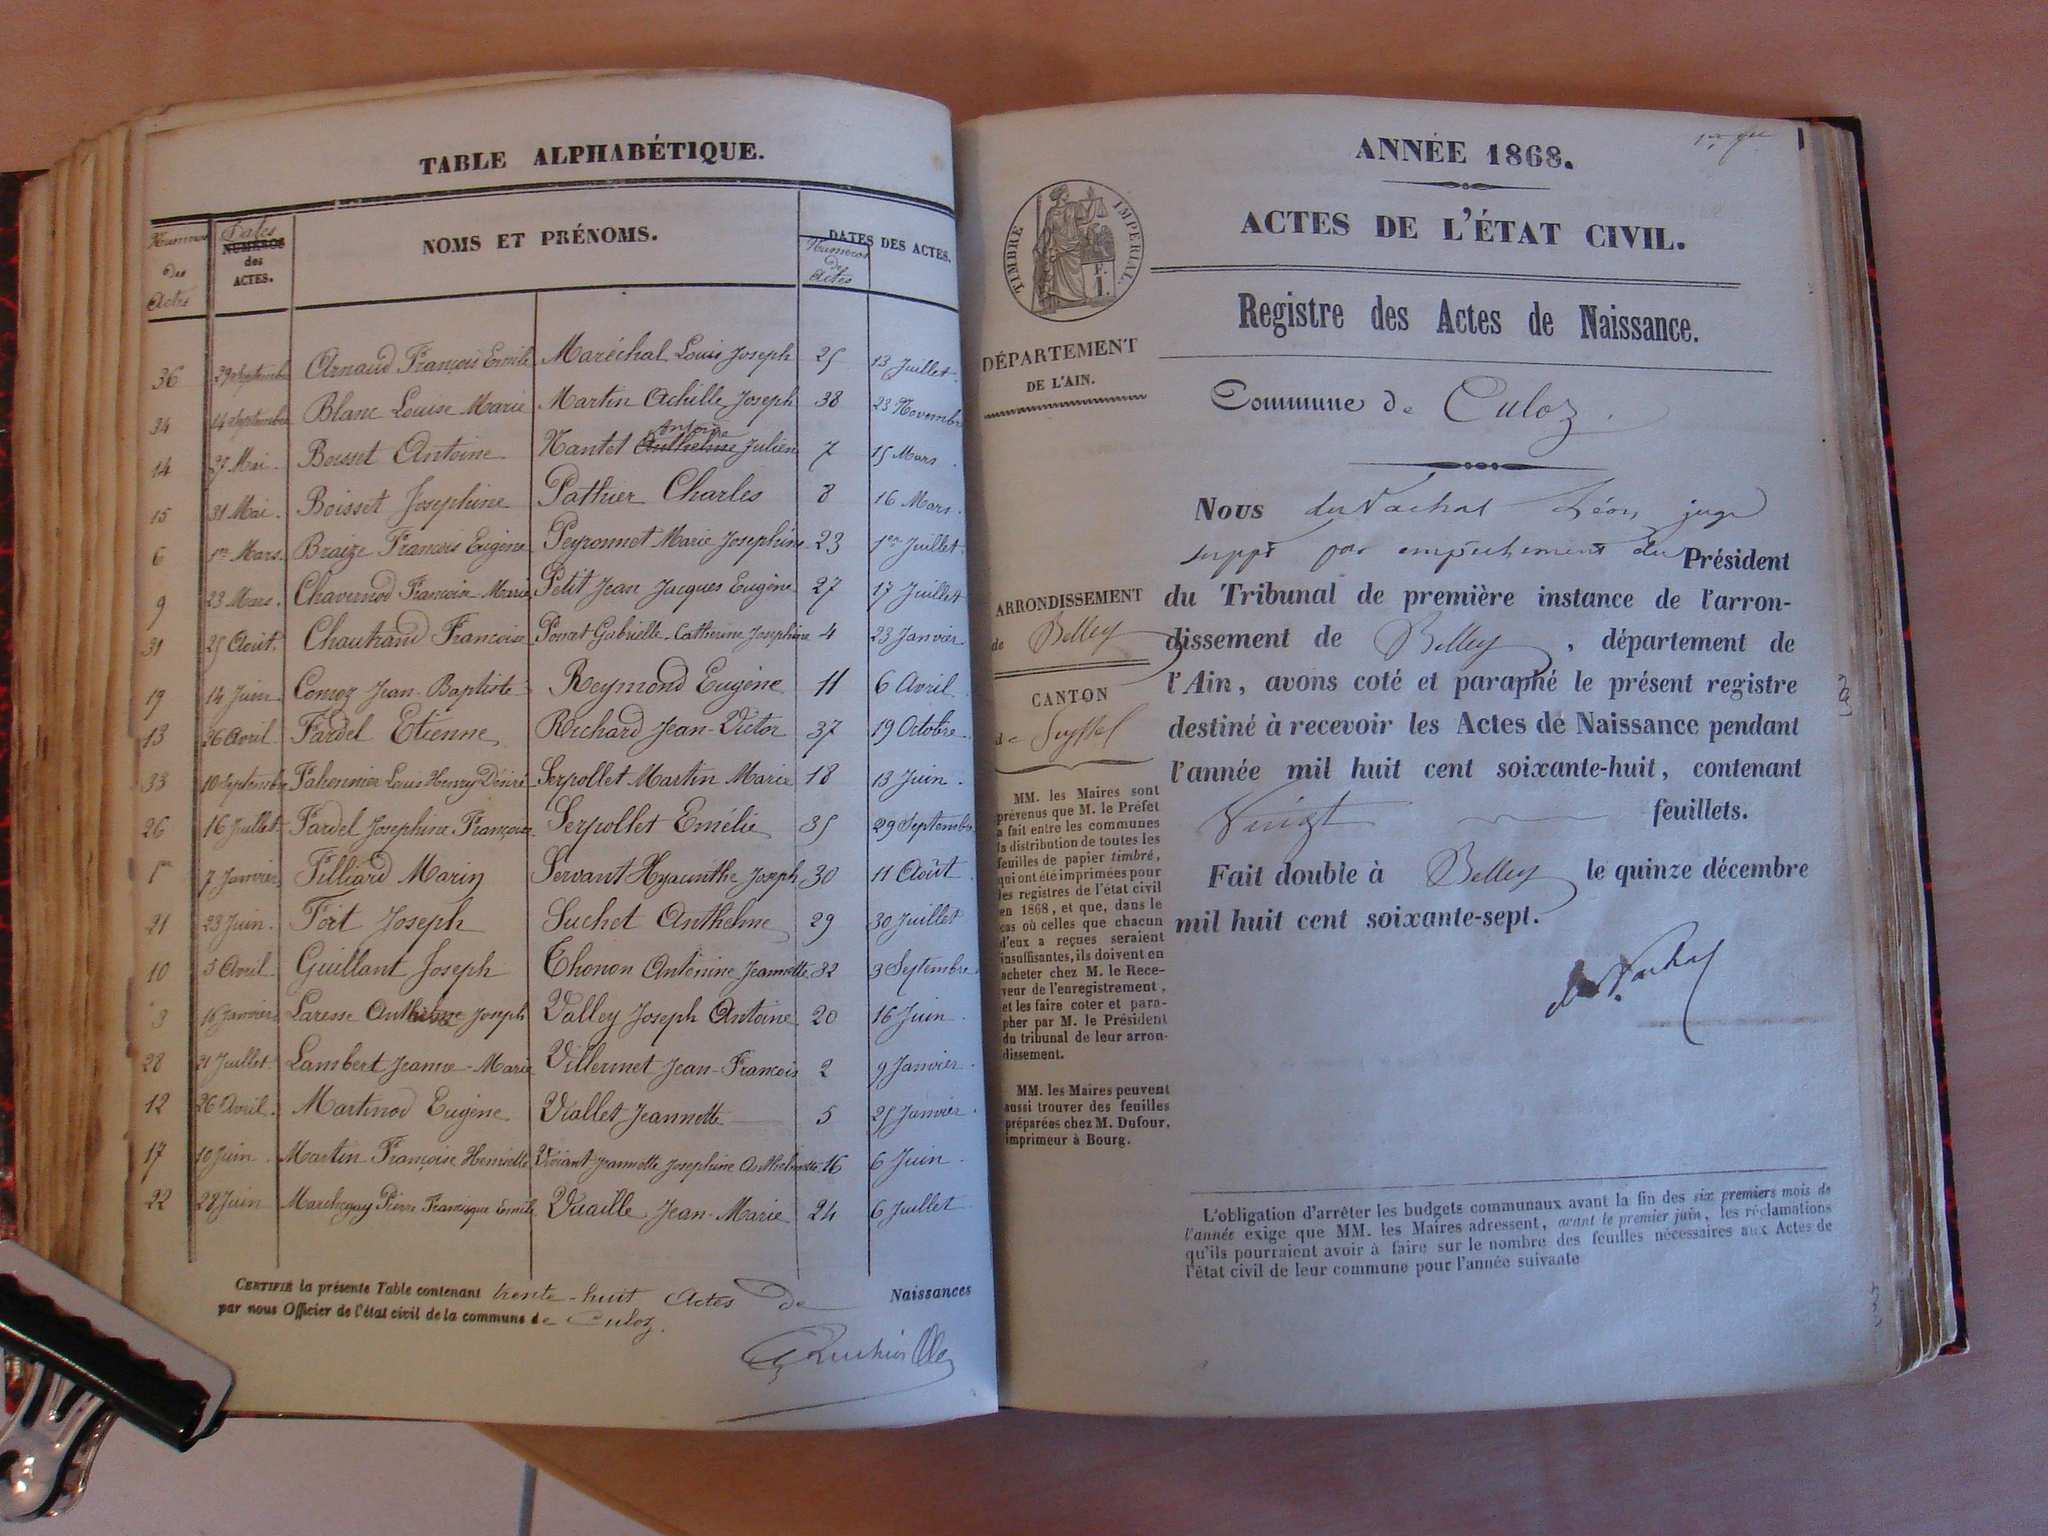 TABLE ALPHABÉTIQUE.
Numéros des Actes
Dates
NUMÉROS des ACTES.
NOMS ET PRÉNOMS.
DATES DES ACTES.
Numéros de Actes
36 29 Septembre Arnaud François Emile Maréchal Louis Joseph 25 13 Juillet.
34 14 Septembre Blanc Louise Marie Martin Achille Joseph 38 23 Novembre
Antoine
14 27 Mai. Boisset Antoine Nantet Anthelme Julien 7 15 Mars.
15 31 Mai. Boisset Josephine Pathier Charles 8 16 Mars.
6 1er Mars. Braize François Eugène Peyronnet Marie Josephine 23 1er Juillet.
9 23 Mars. Françoise Marie Petit Jean Jacques Eugène 27 17 Juillet
31 25 Août. Chautrand Françoise Gabrielle-Catherine Josephine 4 23 Janvier.
19 14 Juin Comoz Jean-Baptiste Reymond Eugène 11 6 Avril.
13 26 Avril. Fardel Etienne Richard Jean-Victor 37 19 Octobre.
33 10 Septembre Louis Henry Désiré Serpollet Martin Marie 18 13 Juin.
26 16 Juillet Fardel Josephine Françoise Serpollet Emélie 35 29 Septembre
1er 7 Janvier Filliard Marin Servant Hyacinthe Joseph 30 11 Août
21 23 Juin. Fort Joseph Suchet Anthelme 29 30 Juillet
10 5 Avril. Guillant Joseph Thonon Antenine Jeannette 32 3 Septembre
3 16 Janvier Laresse Joseph Valley Joseph Antoine 20 16 Juin.
28 21 Juillet. Lambert Jeanne-Marie Villermet Jean-François 2 9 Janvier.
12 26 Avril. Martinod Eugène Viallet Jeannette 5 25 Janvier.
17 10 Juin. Martin Françoise Henriette Jeannette Josephine 16 6 Juin.
22 28 Juin Pierre Francisque Emile Vuaille Jean-Marie 24 6 Juillet.
CERTIFIÉ la présente Table contenant trente-huit Actes de Naissances
par nous Officier de l'état civil de la commune de Culoz.
ANNÉE 1868.
ACTES DE L'ÉTAT CIVIL.
Registre des Actes de Naissance.
TIMBRE IMPÉRIAL
F.
1.
DÉPARTEMENT
DE L'AIN.
Commune de Culoz.
Nous du Vachat Léon, juge
suppt par empêchement du Président
du Tribunal de première instance de l'arron-
dissement de Belley, département de
l'Ain, avons coté et paraphé le présent registre
destiné à recevoir les Actes de Naissance pendant
l'année mil huit cent soixante-huit, contenant
Vingt feuillets.
Fait double à Belley le quinze décembre
mil huit cent soixante-sept.
du Vachat
ARRONDISSEMENT
de Belley
CANTON
de Seyssel
MM. les Maires sont
prévenus que M. le Préfet
a fait entre les communes
la distribution de toutes les
feuilles de papier timbré,
qui ont été imprimées pour
les registres de l'état civil
en 1868, et que, dans le
cas où celles que chacun
d'eux a reçues seraient
insuffisantes, ils doivent en
acheter chez M. le Rece-
veur de l'enregistrement,
et les faire coter et para-
pher par M. le Président
du tribunal de leur arron-
dissement.
MM. les Maires peuvent
aussi trouver des feuilles
préparées chez M. Dufour,
imprimeur à Bourg.
L'obligation d'arrêter les budgets communaux avant la fin des six premiers mois de
l'année exige que MM. les Maires adressent, avant le premier juin, les réclamations
qu'ils pourraient avoir à faire sur le nombre des feuilles nécessaires aux Actes de
l'état civil de leur commune pour l'année suivante